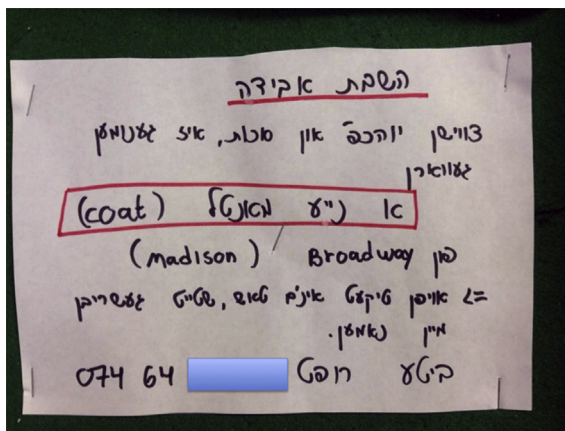 השבת אבידה
צווישן יוהכפ און סוכות, איז גענומען
געווארן
א נייע מאנטל (coat)
פון Broadway (Madison)
=> אויפן טיקעט אינ'ם טאש, שטייט געשריבן
מיין נאמען.
ביטע רופט 074 64